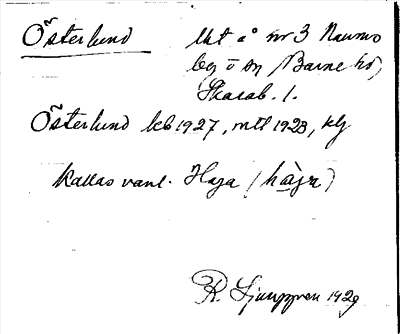 Österlund
Utt å nr 3 Naumo
beg i sn, Barne hd,
Skarab. l.
Österlund kb 1927, mtl 1928, klg
kallas vanl. Haga (hàga)
R. Ljunggren 1929